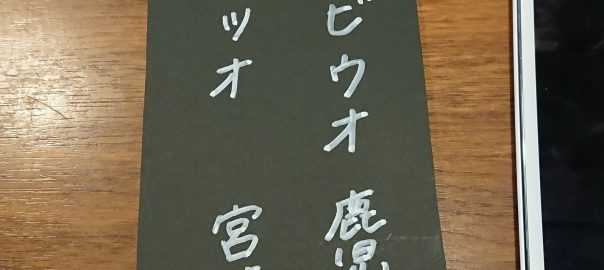 ビウオ 鹿児
ツオ 宮